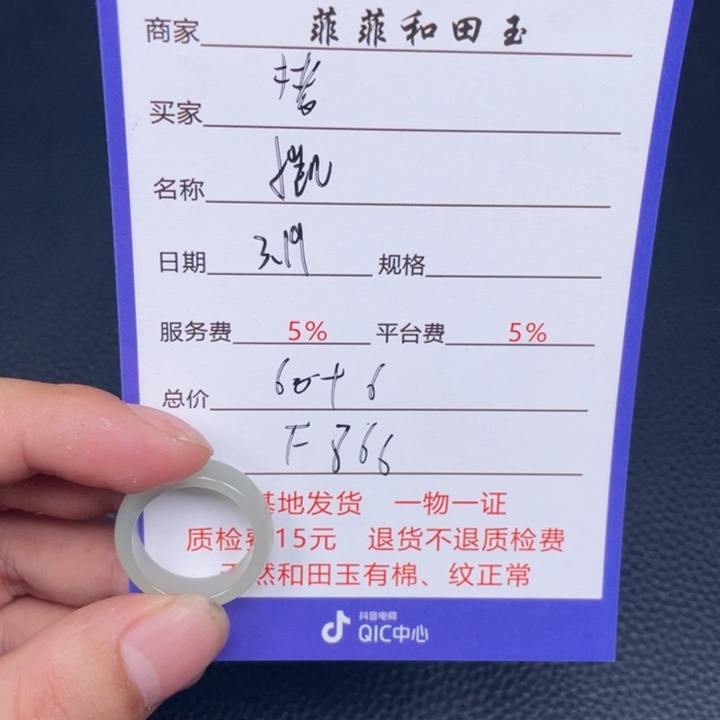 商家 菲菲和田玉
买家
名称
日期 3.19 规格
服务费 5% 平台费 5%
总价 60+6
F866
基地发货 一物一证
质检费15元 退货不退质检费
天然和田玉有棉、纹正常
抖音电商
QIC中心